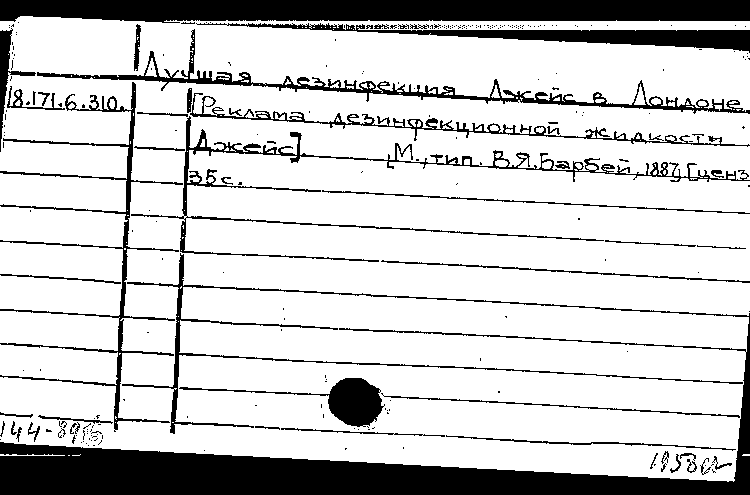 Лучшая дезинфекция Джейс в Лондоне
18.171.6.310. [Реклама дезинфекционной жидкости
Джейс]. [М., тип. В.Я.Барбей, 1887] [ценз
35с.
144-89
1958